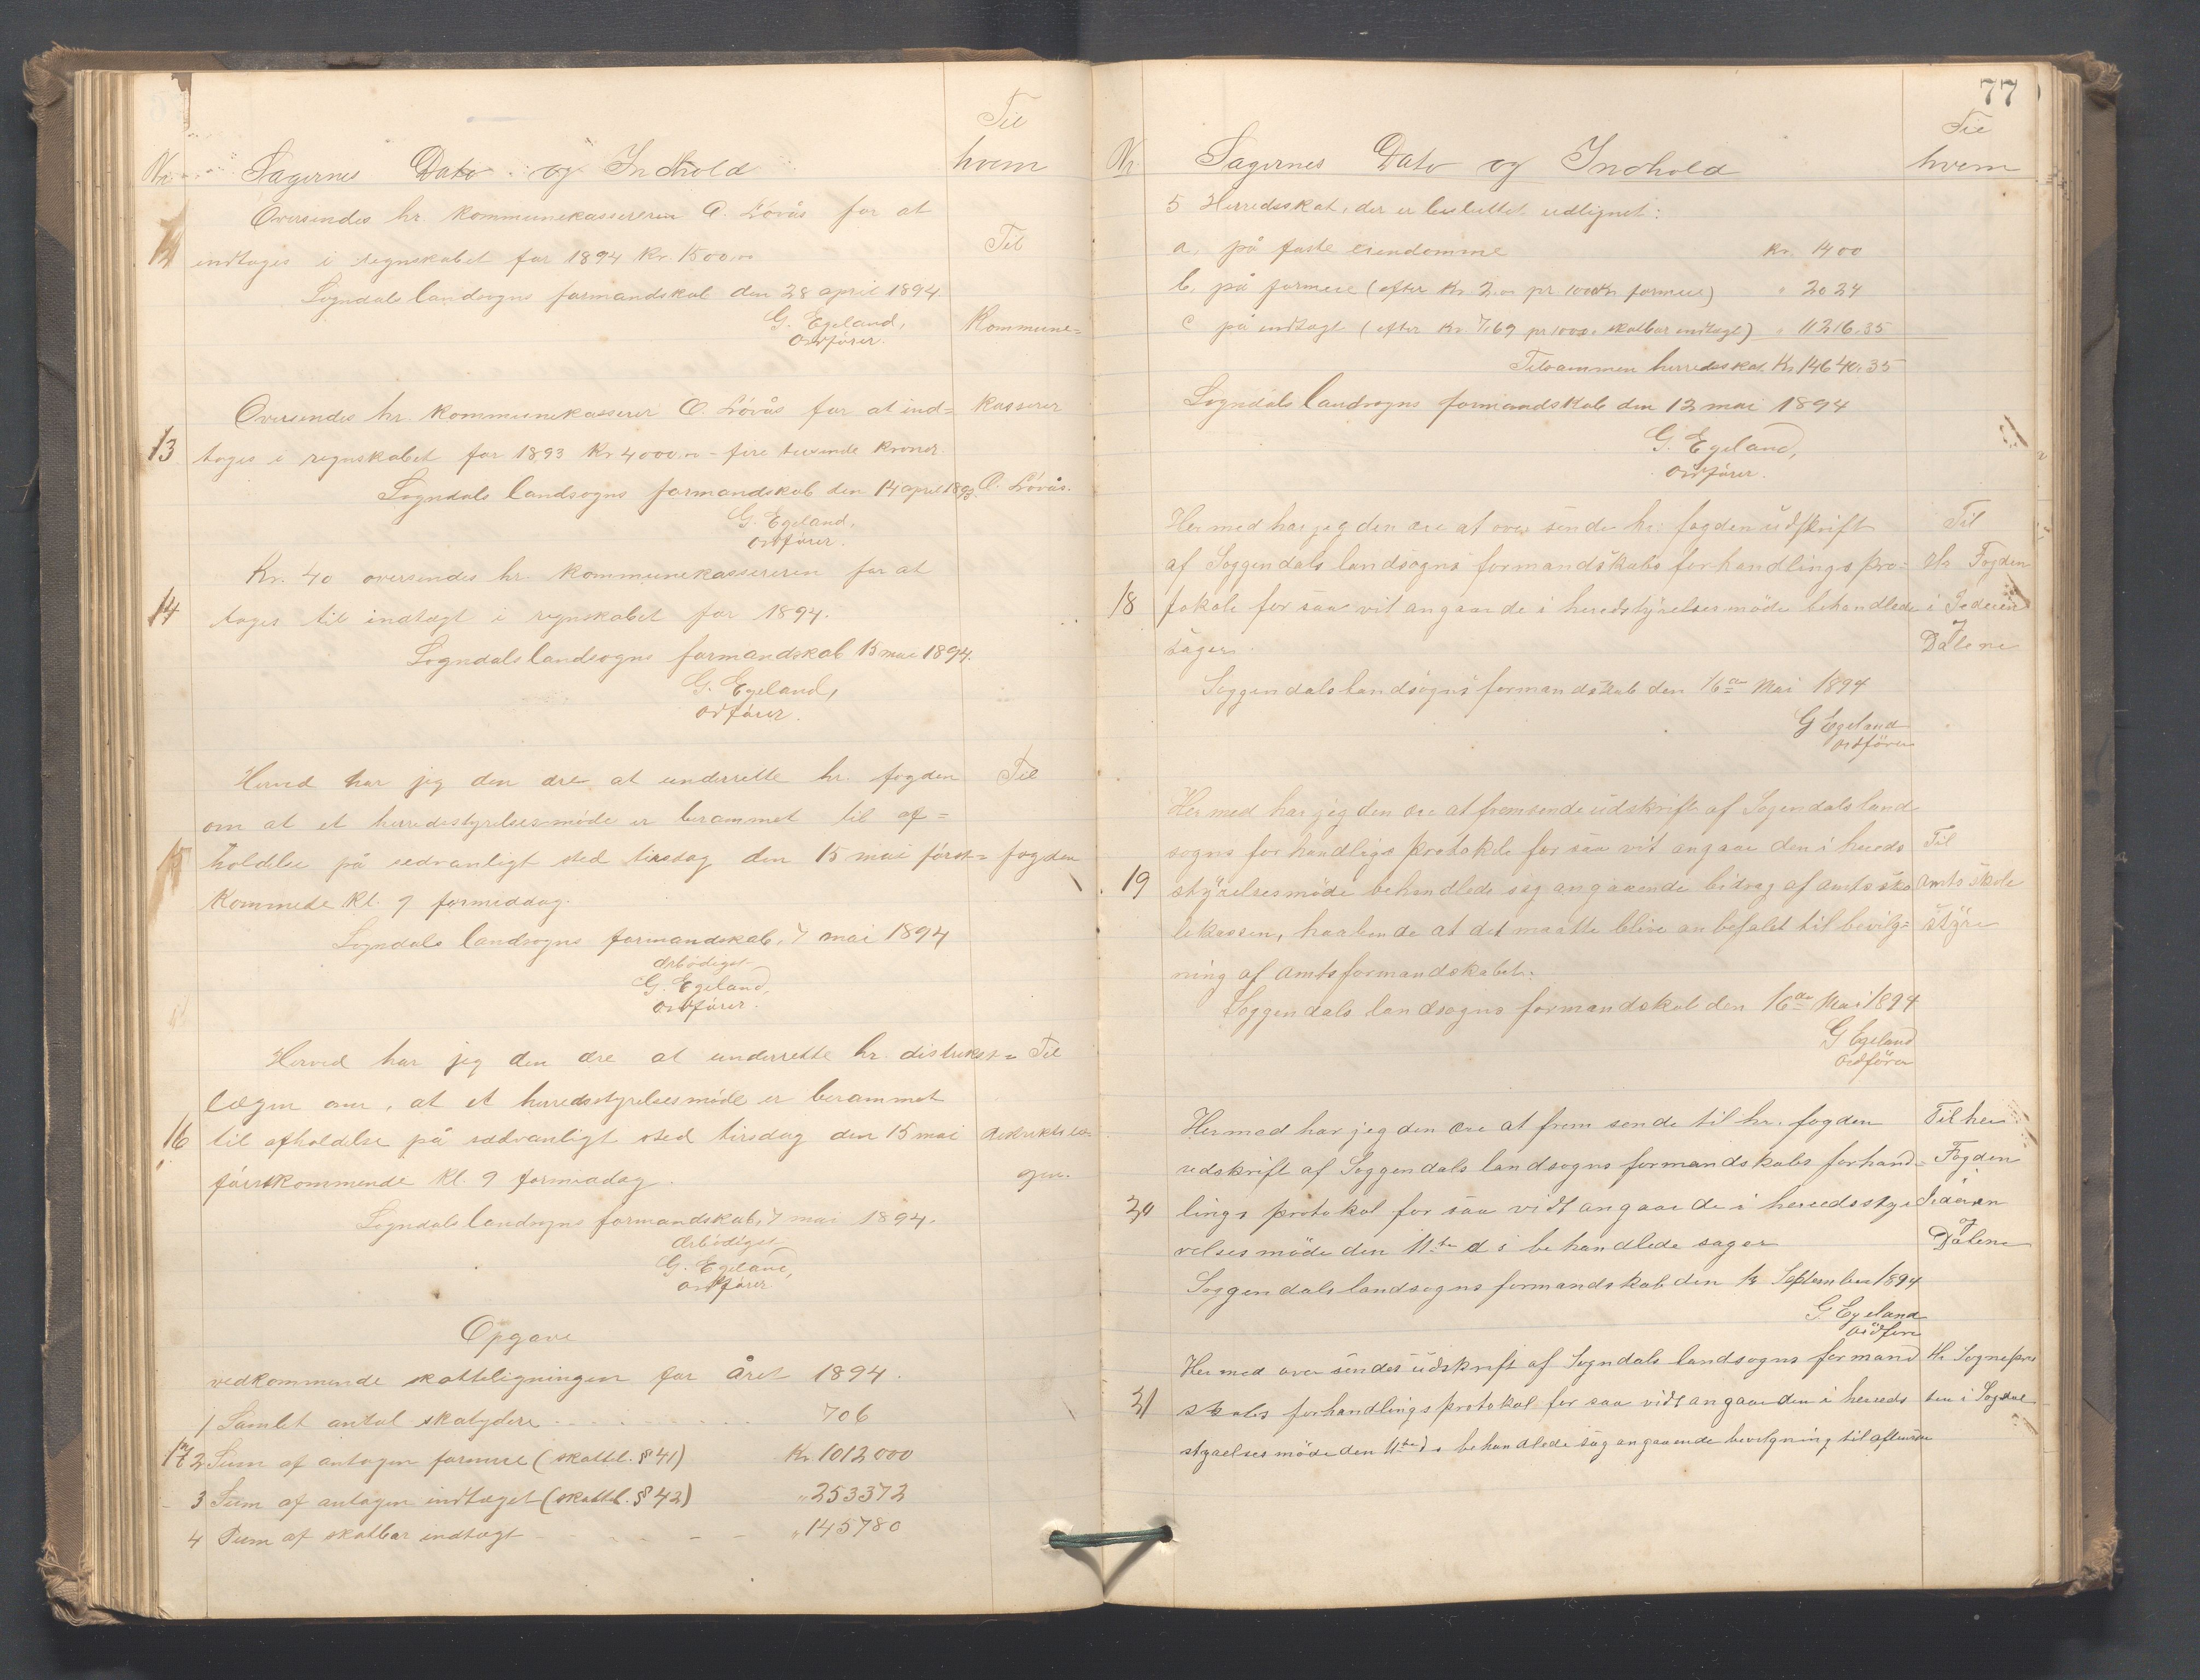 Til
Nr. Sagernes Dato og Indhold hvem
Oversendes hr. kommunekassereren O. Lövås for at
12 indtages i regnskabet for 1894 Kr. 1500.00 Til
Sogndals landsogns formandskab den 28 april 1894.
G. Egeland, Kommune=
ordförer.
Oversendes hr. kommunekasserer O. Lövås for at ind= kasserer
13 tages i regnskabet for 1893 Kr 4000.00 - fire tusende kroner.
Sogndals landsogns formandskab den 14 april 1893. O. Lövås.
G. Egeland,
ordförer.
Kr. 40 oversendes hr. kommunekassereren for at
14 tages til indtægt i regnskabet for 1894.
Sogndals landsogns formandskab 15 mai 1894.
G. Egeland,
ordförer.
Herved har jeg den ære at underrette hr. fogden Til
om at et herredsstyrelsesmöde er berammet til af=
15 holdelse på sedvanligt sted tirsdag den 15 mai först= fogden
kommede kl. 9 formiddag.
Sogndals landsogns formandskab, 7 mai 1894
Ærbödigst
G. Egeland,
ordförer.
Herved har jeg den ære at underrette hr. distrikst= Til
lægen om, at et herredsstyrelsesmöde er berammet
16 til afholdelse på sædvanligt sted tirsdag den 15 mai distriktslæ
förstkommende kl. 9 formiadag. gen.
Sogndals landsogns formandskab, 7 mai 1894.
Ærbödigst
G. Egeland,
ordförer
Opgave
vedkommende skatteligningen for Året 1894.
1 Samlet antal skatydere 706
17 2 Sum af antagen formue (skattel. § 41) Kr. 1012000
3 Sum af antagen indtæget (skattel. § 42) " 253372
4 Sum af skatbar indtægt " 145780
77
Til
Nr. Sagernes Dato og Indhold hvem
5 Herredsskat, der er besluttet udlignet:
a. på faste eiendomme Kr. 1400
b. på formue (efter Kr. 2.00 pr 1000 Kr formue) " 2024
c på indtægt (efter Kr. 7,69 pr 100 Kr. skatbar indtægt) " 11216.35
Tilsammen herredsskat. Kr 14640.35
Sogndals landsogns formandskab den 12 mai 1894
G. Egeland,
ordförer.
Hermed har jeg den ære at over sende hr. fogden udskrift Til
af Soggendals landsogns formandskabs forhandlings pro= Hr Fogden
18 tokole for saa vit angaar de i heredstyrelses möde behandlede i Jederen
sager. & Dalene
Soggendals landsogns formandskab den 16de Mai 1894
G Egeland
ordförer
Hermed har jeg den ære at fremsende udskrift af Sogendals land
sogns forhandligs protokole for saa vit angaar den i hereds Til
19 styrelsesmöde behandlede sag angaaende bidrag af amtssko Amtsskole
lekassen, haabende at det maatte blive anbefalet til bevilg= styre
ning af amtsformandskabet.
Soggendals landsogns formandskab den 16de Mai 1894
G Egeland
Ordförer
Hermed har jeg den ære at frem sende til hr. fogden Til her
udskrift af Soggendals landsogns formandskabs forhand= Fogden
20 lings protokol for saa vidt angaar de i herredsstye Jederen
relses möde den 11te ds behandlede sager & Dalene
Soggendals landsogns formandskab den 13 September 1894
G Egeland
ordförer
Hermed over sendes udskrift af Sogndals landsogns formand Hr Sognepræ
21 skabs forhandlingsprotokol for saa vidt angaar den i herreds sten i Sogndal
styrelses möde den 11te ds behandlede sag angaaende bevilgning til aftensko